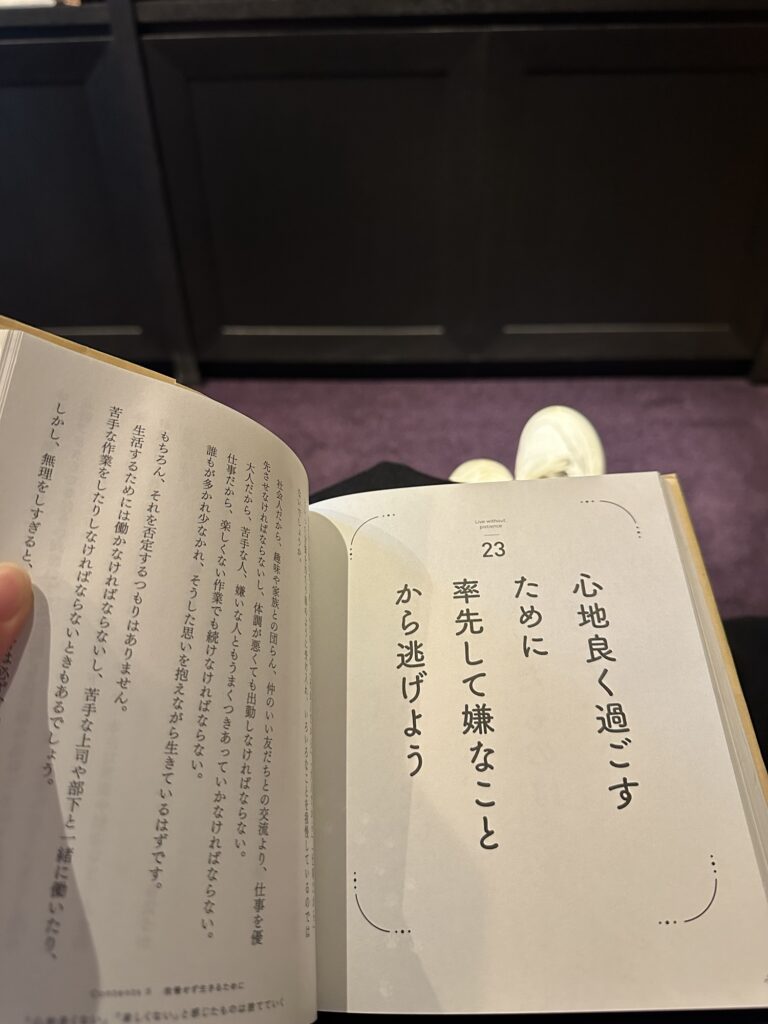 社会人だから、趣味や家族との団らん、仲のいい友だちとの交流より、仕事を優
先させなければならないし、体調が悪くても出勤しなければならない。
大人だから、苦手な人、嫌いな人ともうまくつきあっていかなければならない。
仕事だから、楽しくない作業でも続けなければならない。
誰もが多かれ少なかれ、そうした思いを抱えながら生きているはずです。
もちろん、それを否定するつもりはありません。
生活するためには働かなければならないし、苦手な上司や部下と一緒に働いたり、
苦手な作業をしたりしなければならないときもあるでしょう。
しかし、無理をしすぎると、
我慢せず生きるために
Live without
patience
23
心地良く過ごす
ために
率先して嫌なこと
から逃げよう